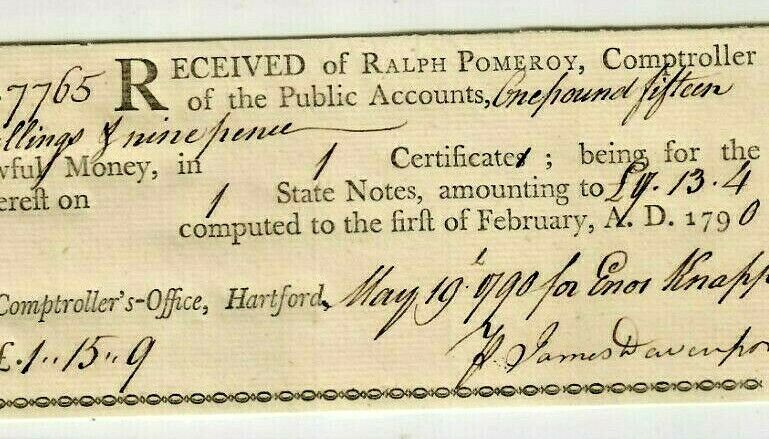 7765 RECEIVED of RALPH POMEROY, Comptroller
of the Public Accounts, One pound fifteen
llings & nine pence
wful Money, in 1 Certificates; being for the
ereſt on 1 State Notes, amounting to £9.13.4
computed to the firſt of February, A. D. 1790
Comptroller's-Office, Hartford, May 19t 1790 for Enos Knapp
£.1"15"9 James Davenpo